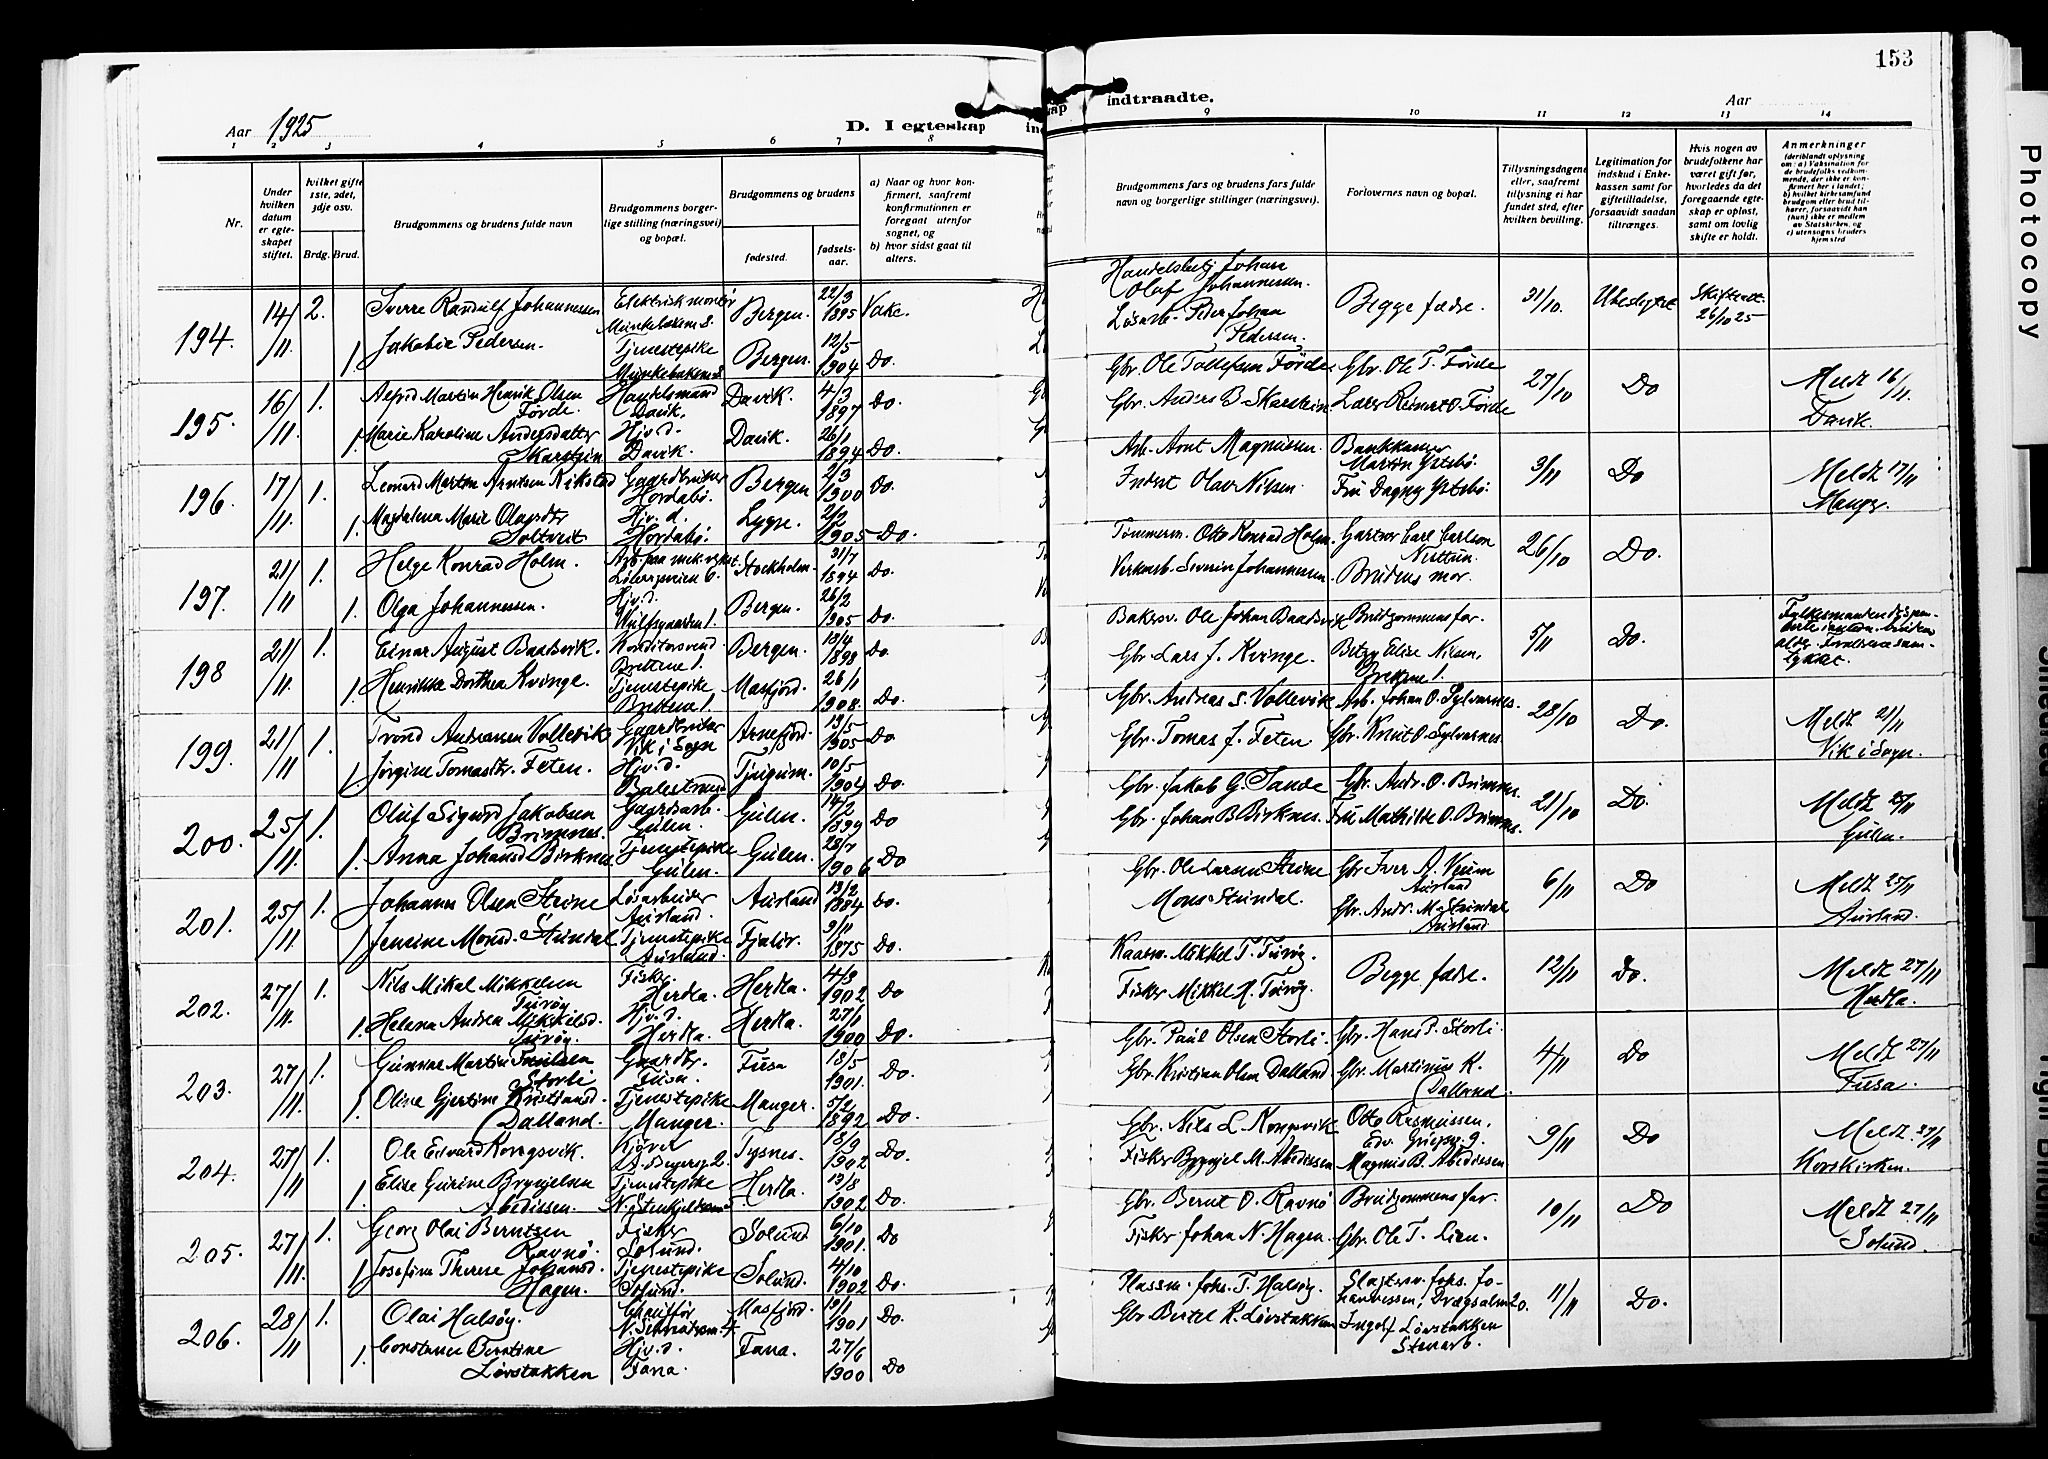 153
Aar 1925
D. I egteskap
indtraadte.
Aar
1 2 3 4 5 6 7 8 9 10 11 12 13 14
Nr.
Under hvilken datum er egteskapet stiftet.
hvilket gifte 1ste, 2det, 3dje osv.
Brdg. Brud.
Brudgommens og brudens fulde navn
Brudgommens borgerlige stilling (næringsvei) og bopæl.
Brudgommens og brudens
fødested.
fødselsaar.
a) Naar og hvor konfirmert, saafremt konfirmationen er foregaat utenfor sognet, og
b) hvor sidst gaat til alters.
Brudgommens fars og brudens fars fulde navn og borgerlige stillinger (næringsvei).
Forlovernes navn og bopæl.
Tillysningsdagene eller, saafremt tillysning ei har fundet sted, efter hvilken bevilling.
Legitimation for indskud i Enkekassen samt for giftetilladelse, forsaavidt saadan tiltrænges.
Hvis nogen av brudefolkene har været gift før, hvorledes da det foregaaende egteskap er opløst, samt om lovlig skifte er holdt.
Anmerkninger
(deriblandt oplysning om: a) Vaksination for de brudefolks vedkommende, der ikke er konfirmert her i landet; b) hvilket kirkesamfund brudgom eller brud tilhører, forsaavidt han (hun) ikke er medlem av Statskirken, og c) utensogns bruders hjemsted
194. 14/11 2. Sverre Randulf Johannessen Elektrisk montør Bergen. 22/3 1895 Vake.
Handelsbetj Johan Olaf Johannessen. Begge fædre. 31/10. Ubeskyttet Skifteatt. 26/10 25
1 Jakobia Pedersen. Tjenestepike Bergen. 12/5 1904 Do.
Løsarb. Peder Johan Pedersen.
195. 16/11 1. Alfrid Martin Henrik Olsen Førde. Handelsmand Davik. Davik. 4/3 1897 Do.
Gbr. Ole Tollefsen Førde Gbr. Ole T. Førde 27/10 Do Meldt 16/11. Davik.
1. Marie Karoline Andersdatter Skarstein Hjv.d. Davik. Davik. 26/1 1894 Do.
Gbr. Anders B Skarstein. Lars Reinert O. Førde
196. 17/11 1. Leonard Martin Arntsen Rikstad Gaardbruker Hordabø. Bergen 2/3 1900 Do.
Arb. Arnt Magnussen. Bankkasser Martin Ystebø. 3/11 Do Meldt 17/11 Manger.
1. Magdalena Marie Olafsdtr Soltveit Hjv. d. Hordabø. Lygre. 2/2 1905 Do.
Inderst Olav Nilsen. Fru Dagny Ystebø.
197. 21/11 1. Helge Konrad Holm. Arb. paa mek. verkst. Stockholm. 31/7 1894 Do.
Tømmerm. Otto Konrad Holm. Gartner Carl Carlson Nesttun. 26/10 Do.
1. Olga Johannessen. Hjv.d. Bergen. 26/2 1905 Do.
Severin Johannessen. Brudens mor.
198 21/11 1. Einar August Baadsvik. Konditorsvend Bergen. 13/4 1898 Do
Bakersv. Ole Johan Baadsvik Brudgommens far. 5/11 Do.
1. Henrikke Dorthea Kvinge. Tjenestepike Masfjord. 26/1 1908. Do.
Gbr. Lars J. Kvinge. Betzy Elise Nilsen,
199. 21/11 1. Trond Andreassen Vollevik Gaardbruker Vik i Sogn Arnefjord. 13/5 1905 Do
Gbr. Andreas S. Vollevik Arb. Johan O. Sylvarnes. 28/10 Do. Meldt 21/11 Vik i Sogn.
1 Jørgine Tomasdtr. Feten. Hjv.d. Balestrand Tjugum. 10/5 1904 Do.
Gbr. Tomas J. Feten Gbr. Knut O. Sylvarnes.
200. 25/11 1. Oluf Sigurd Jakobsen Brimnes. Gaardsarb. Gulen. Gulen. 14/2 1899 Do
Gbr. Jakob G. Sande Gbr. Andr. O. Brimnes. 21/10 Do. Meldt 25/11 Gulen.
1. Anna Johansd Birknes Tjenestepike Gulen. Gulen. 28/7 1906 Do
Gbr. Johan B Birknes. Fru Mathilde O. Brimnes.
201. 25/11 1. Johannes Olsen Steine Løsarbeider Aurland. Aurland 13/2 1884 Do.
Gbr. Ole Larsen Steine Gbr Iver A. Veum Aurland 6/11 Do Meldt 25/11 Aurland.
1 Jensine Monsd. Stundal Tjenestepike Aurland. Fjaler. 9/11 1875 Do.
Mons Stundal. Gbr. Andr. M Stundal Aurland
202. 27/11 1. Nils Mikal Mikkelsen Turøy Fisker Herdla. Herdla. 4/3 1902 Do
Kaarm. Mikkel T. Turøy. Begge fædre. 12/11 Do. Meldt 27/11 Herdla.
1. Helena Andrea Mikkelsd. Turøy. Hjv.d Herdla. Herdla. 27/1 1900 Do.
Fisker Mikkel H. Turøy.
203. 27/11 1. Gunnar Martin Paulsen Storli Gaardbr. Fusa. Fusa 18/5 1901. Do.
Gbr. Paul Olsen Storli. Gbr. Hans P. Storli. 4/11 Do Meldt 27/11 Fusa.
1. Oline Gjertine Kristiansd. Dalland. Tjenestepike Manger. Manger. 5/2 1892 Do
Gbr. Kristian Olsen Dalland. Gbr. Martinus K. Dalland.
204. 27/11 1. Ole Edvard Kongsvik. Kjører Tysnes. 18/9 1902 Do.
Gbr. Nils L. Kongsvik Otto Rasmussen, 9/11 Do Meldt 27/11 Korskirken.
1. Elise Gurine Brynjelsen Abedissen. Tjenestepike Herdla. 13/8 1902 Do.
Fisker Brynjel M. Abedissen Magnus B. Abedissen
205. 27/11 1. Georg Olai Berntsen Ravnø. Fisker Solund. Solund 6/10 1901. Do
Gbr. Bernt O. Ravnø Brudgommens far. 10/11 Do Meldt 27/11 Solund.
1 Josefine Therese Johansd. Hagen. Tjenestepike Solund. Solund. 4/10 1902 Do.
Fisker Johan N. Hagen. Gbr. Ole T. Lien.
206. 28/11 1. Olai Halsøy. Chauffør Masfjord. 19/1 1901 Do
Plassm. Johs. T. Halsøy. Slagtersv. Johs. Johannessen, Drægsalm. 20. 11/11 Do.
1. Constance Berntine Løvstakken Hjv.d. Fana. Fana. 27/6 1900 Do
Gbr Bertel K. Løvstakken Ingolf Løvstakken
Photocopy